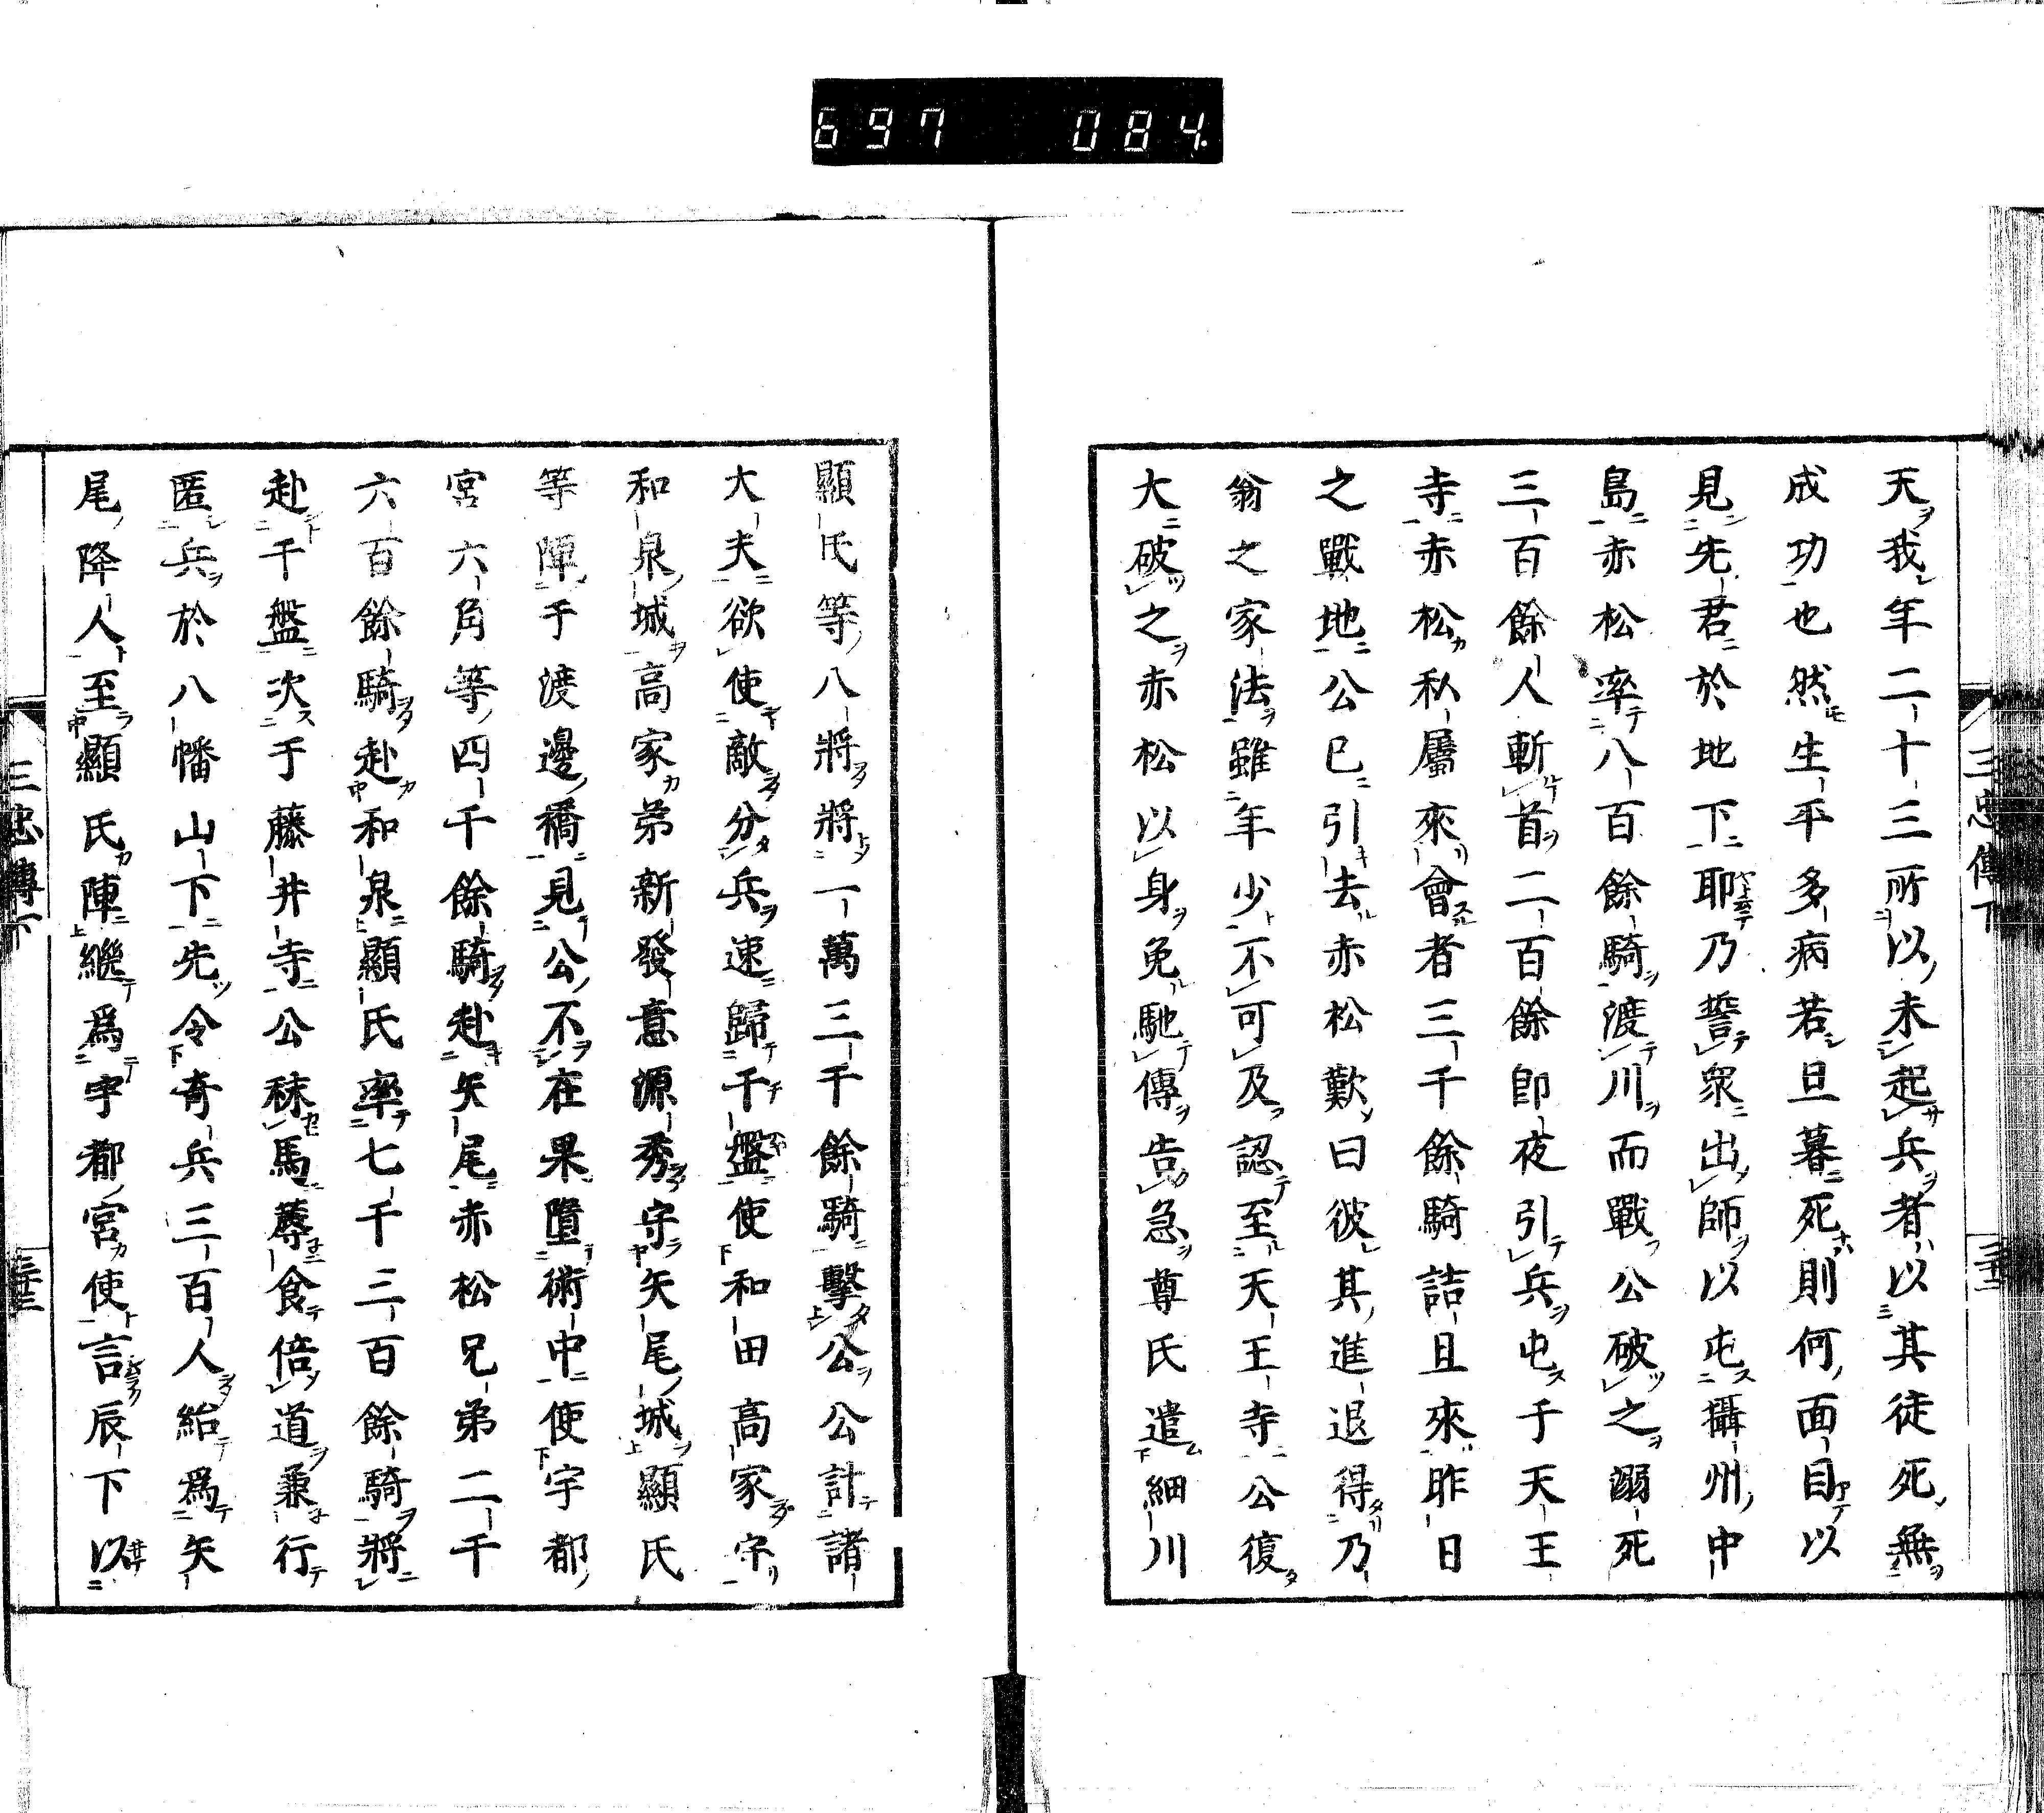 697 084
天我年二十三所以未起兵者以其徒死無
成功也然生平多病若旦暮死則何面目以
見先君於地下耶乃誓衆出師以屯攝州中
島赤松率八百餘騎渡川而戰公破之溺死
三百餘人斬首二百餘卽夜引兵屯于天王
寺赤松私屬來會者三千餘騎詰且來昨日
之戰地公已引去赤松歎曰彼其進退得乃
翁之家法雖年少不可及認至天王寺公復
大破之赤松以身免馳傳告急尊氏遣細川
三忠傳下
顯氏等八將將一萬三千餘騎擊公公計諸
大夫欲使敵分兵速歸千盤使和田高家守
和泉城高家弟新發意源秀守矢尾城顯氏
等陣于渡邊橋見公不在果墮術中使宇都
宮六角等四千餘騎赴矢尾赤松兄弟二千
六百餘騎赴和泉顯氏率七千三百餘騎將
赴千盤次于藤井寺公秣馬蓐食倍道兼行
匿兵於八幡山下先令奇兵三百人紿爲矢
尾降人至顯氏陣繼爲宇都宮使言辰下以
三忠傳下